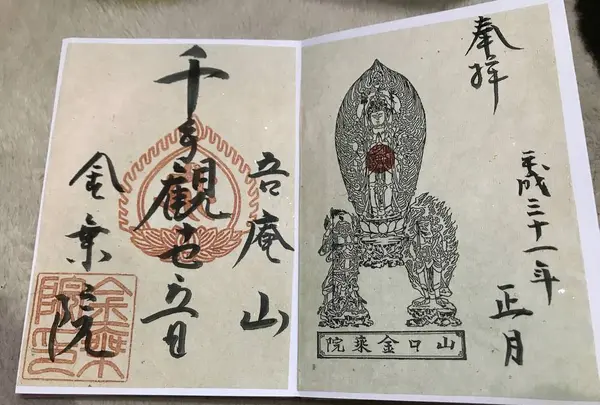 奉拝
平成三十一年
正月
山口金乗院
吾庵山
千手觀世音
金乗院
金乗院印